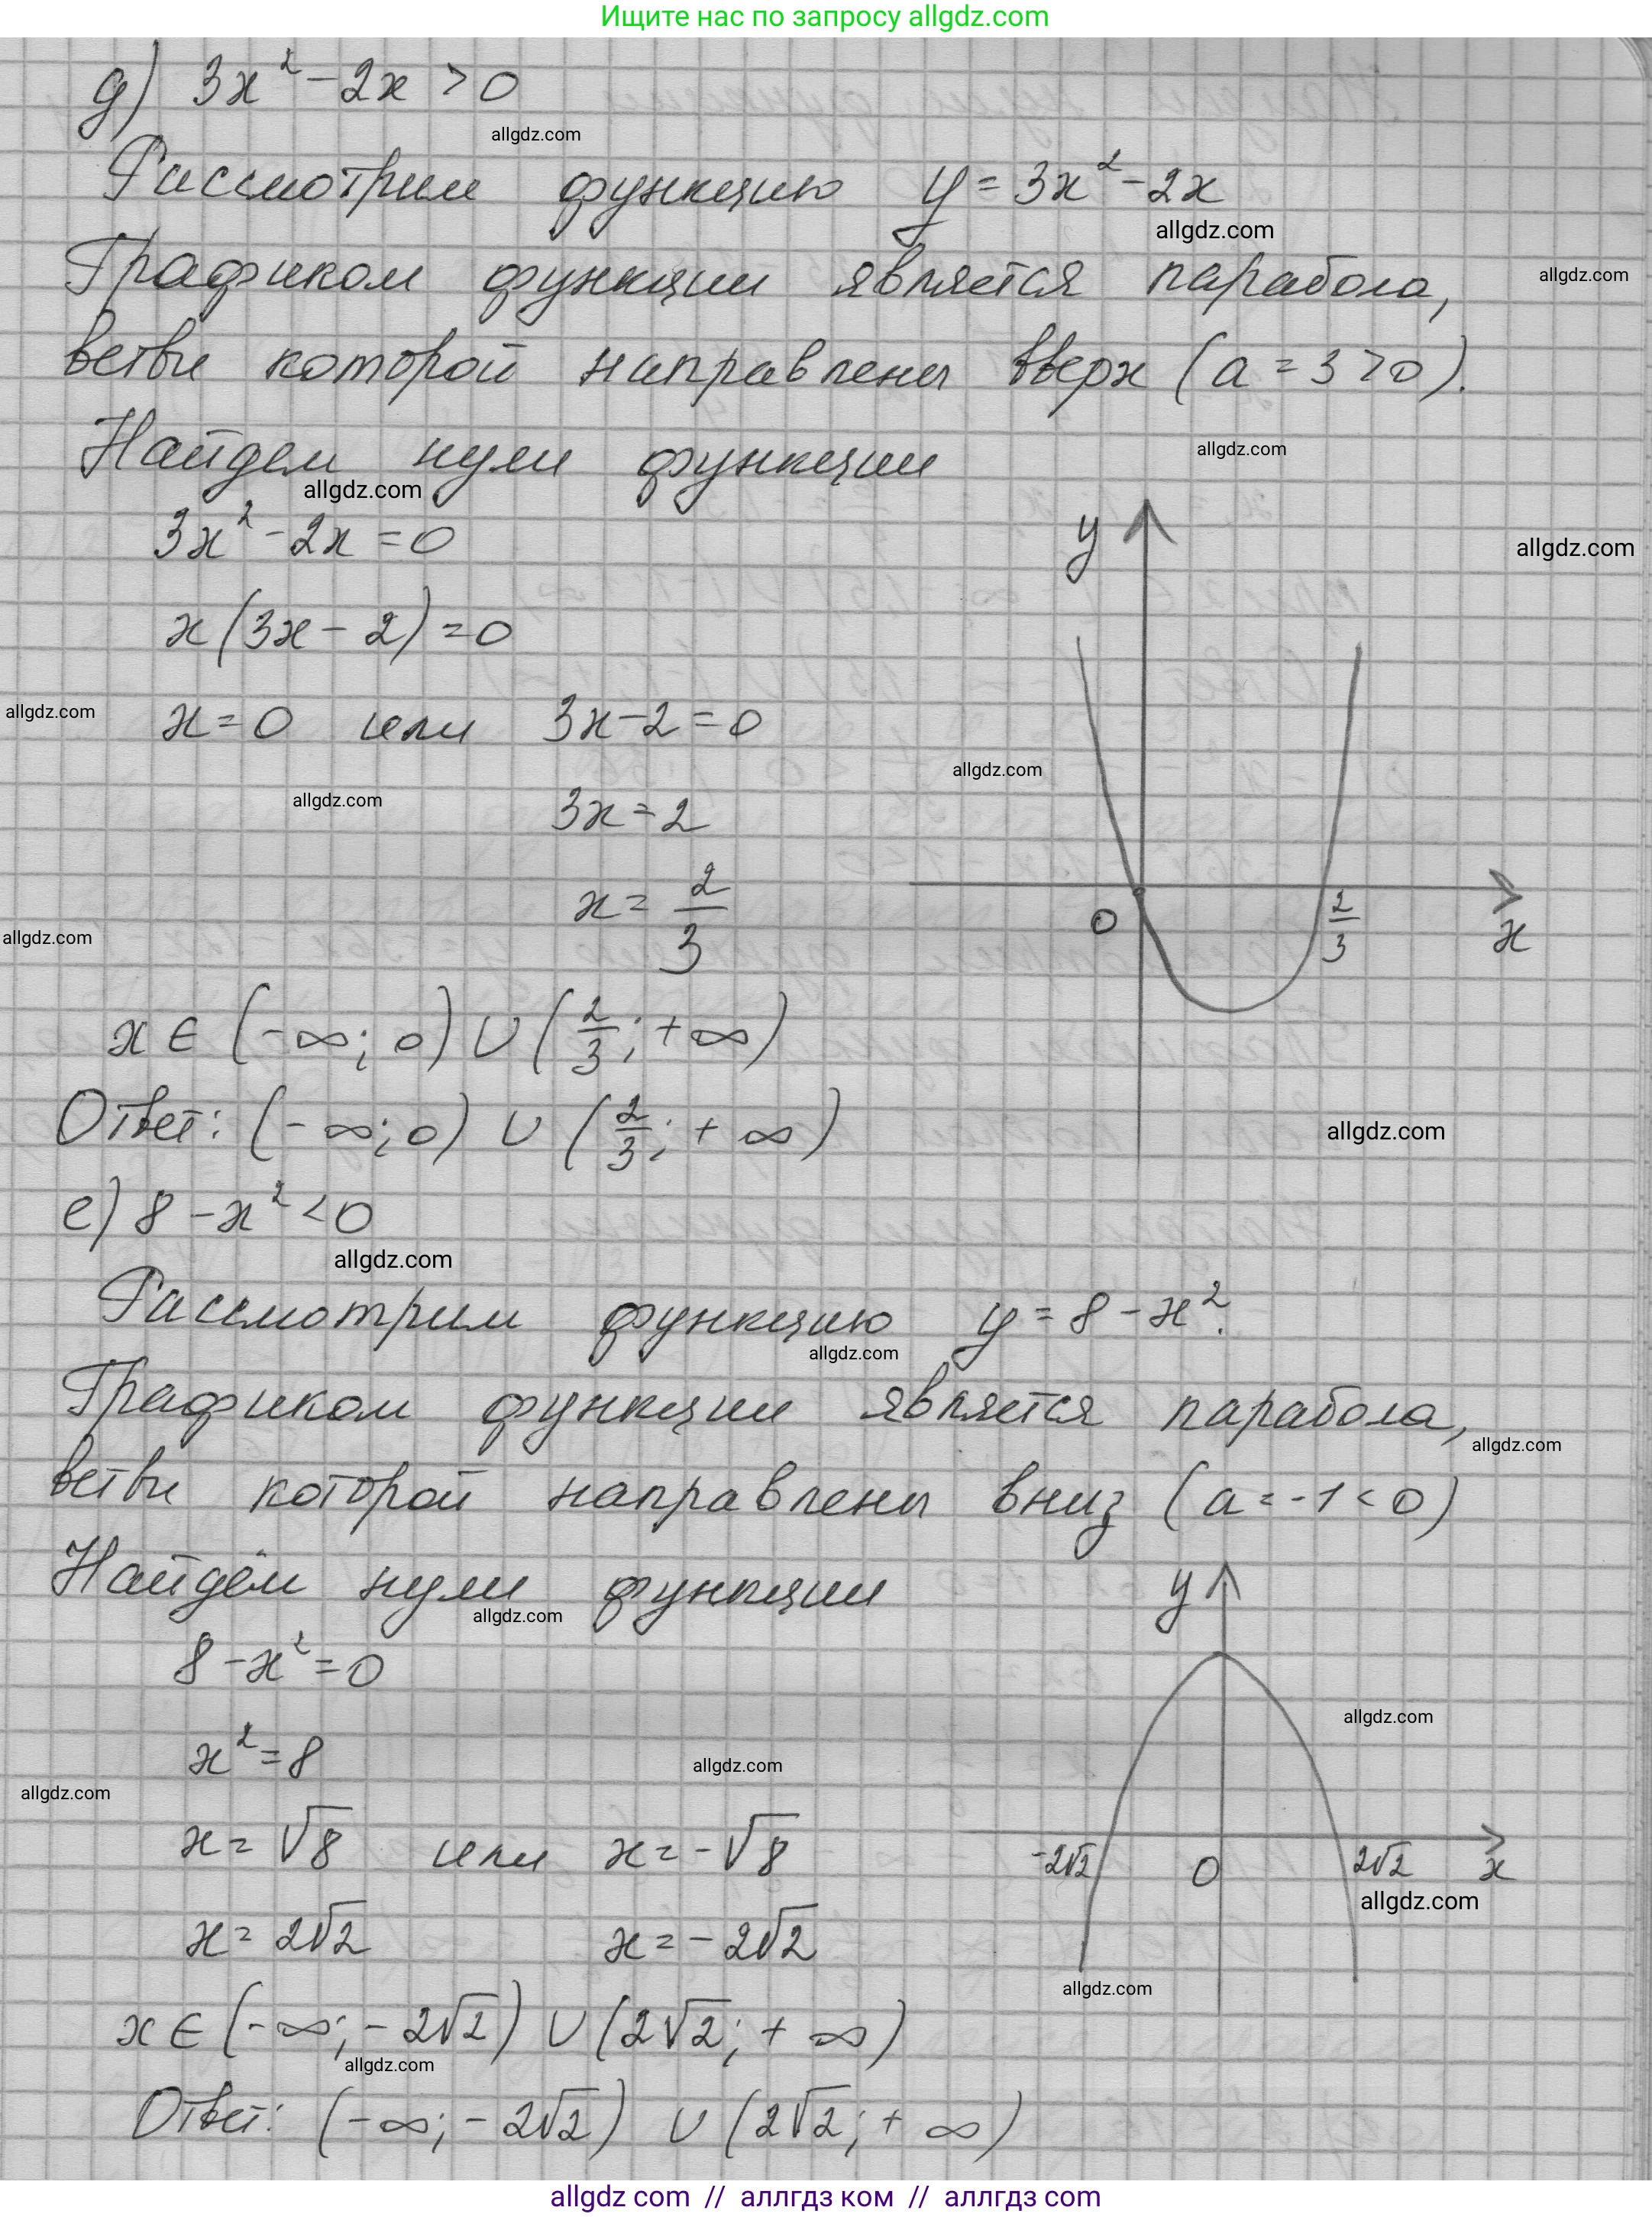 Ищите нас по запросу allgdz.com
д) 3x² - 2x > 0
allgdz.com
Рассмотрим функцию y = 3x² - 2x
allgdz.com
Графиком функции является парабола,
allgdz.com
ветви которой направлены вверх (a = 3 > 0).
Найдем нули функции
allgdz.com
allgdz.com
3x² - 2x = 0
y
allgdz.com
x(3x - 2) = 0
allgdz.com
x = 0 или 3x - 2 = 0
allgdz.com
allgdz.com
3x = 2
x = 2/3
0 2/3 x
allgdz.com
x ∈ (-∞; 0) ∪ (2/3; +∞)
Ответ: (-∞; 0) ∪ (2/3; +∞)
allgdz.com
е) 8 - x² < 0
allgdz.com
Рассмотрим функцию y = 8 - x².
allgdz.com
Графиком функции является парабола,
allgdz.com
ветви которой направлены вниз (a = -1 < 0)
Найдём нули функции
allgdz.com
y
8 - x² = 0
allgdz.com
x² = 8
allgdz.com
allgdz.com
x = √8 или x = -√8
-2√2 0 2√2 x
allgdz.com
x = 2√2 x = -2√2
allgdz.com
x ∈ (-∞; -2√2) ∪ (2√2; +∞)
allgdz.com
Ответ: (-∞; -2√2) ∪ (2√2; +∞)
allgdz com // аллгдз ком // аллгдз com